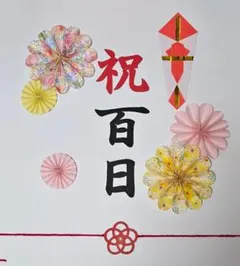 祝
百
日